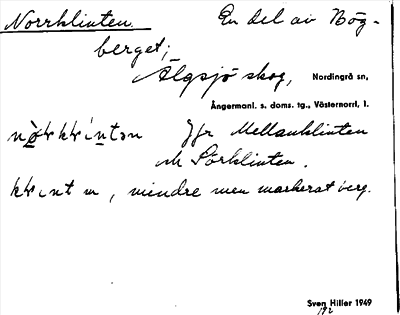 Norrklinten. En del av Bög-
berget;
Älgsjö skog, Nordingrå sn,
Ångermanl. s. doms. tg., Västernorrl. l.
Jfr Mellanklinten
Sörklinten.
m, mindre men markerat berg.
Sven Hiller 1949
192